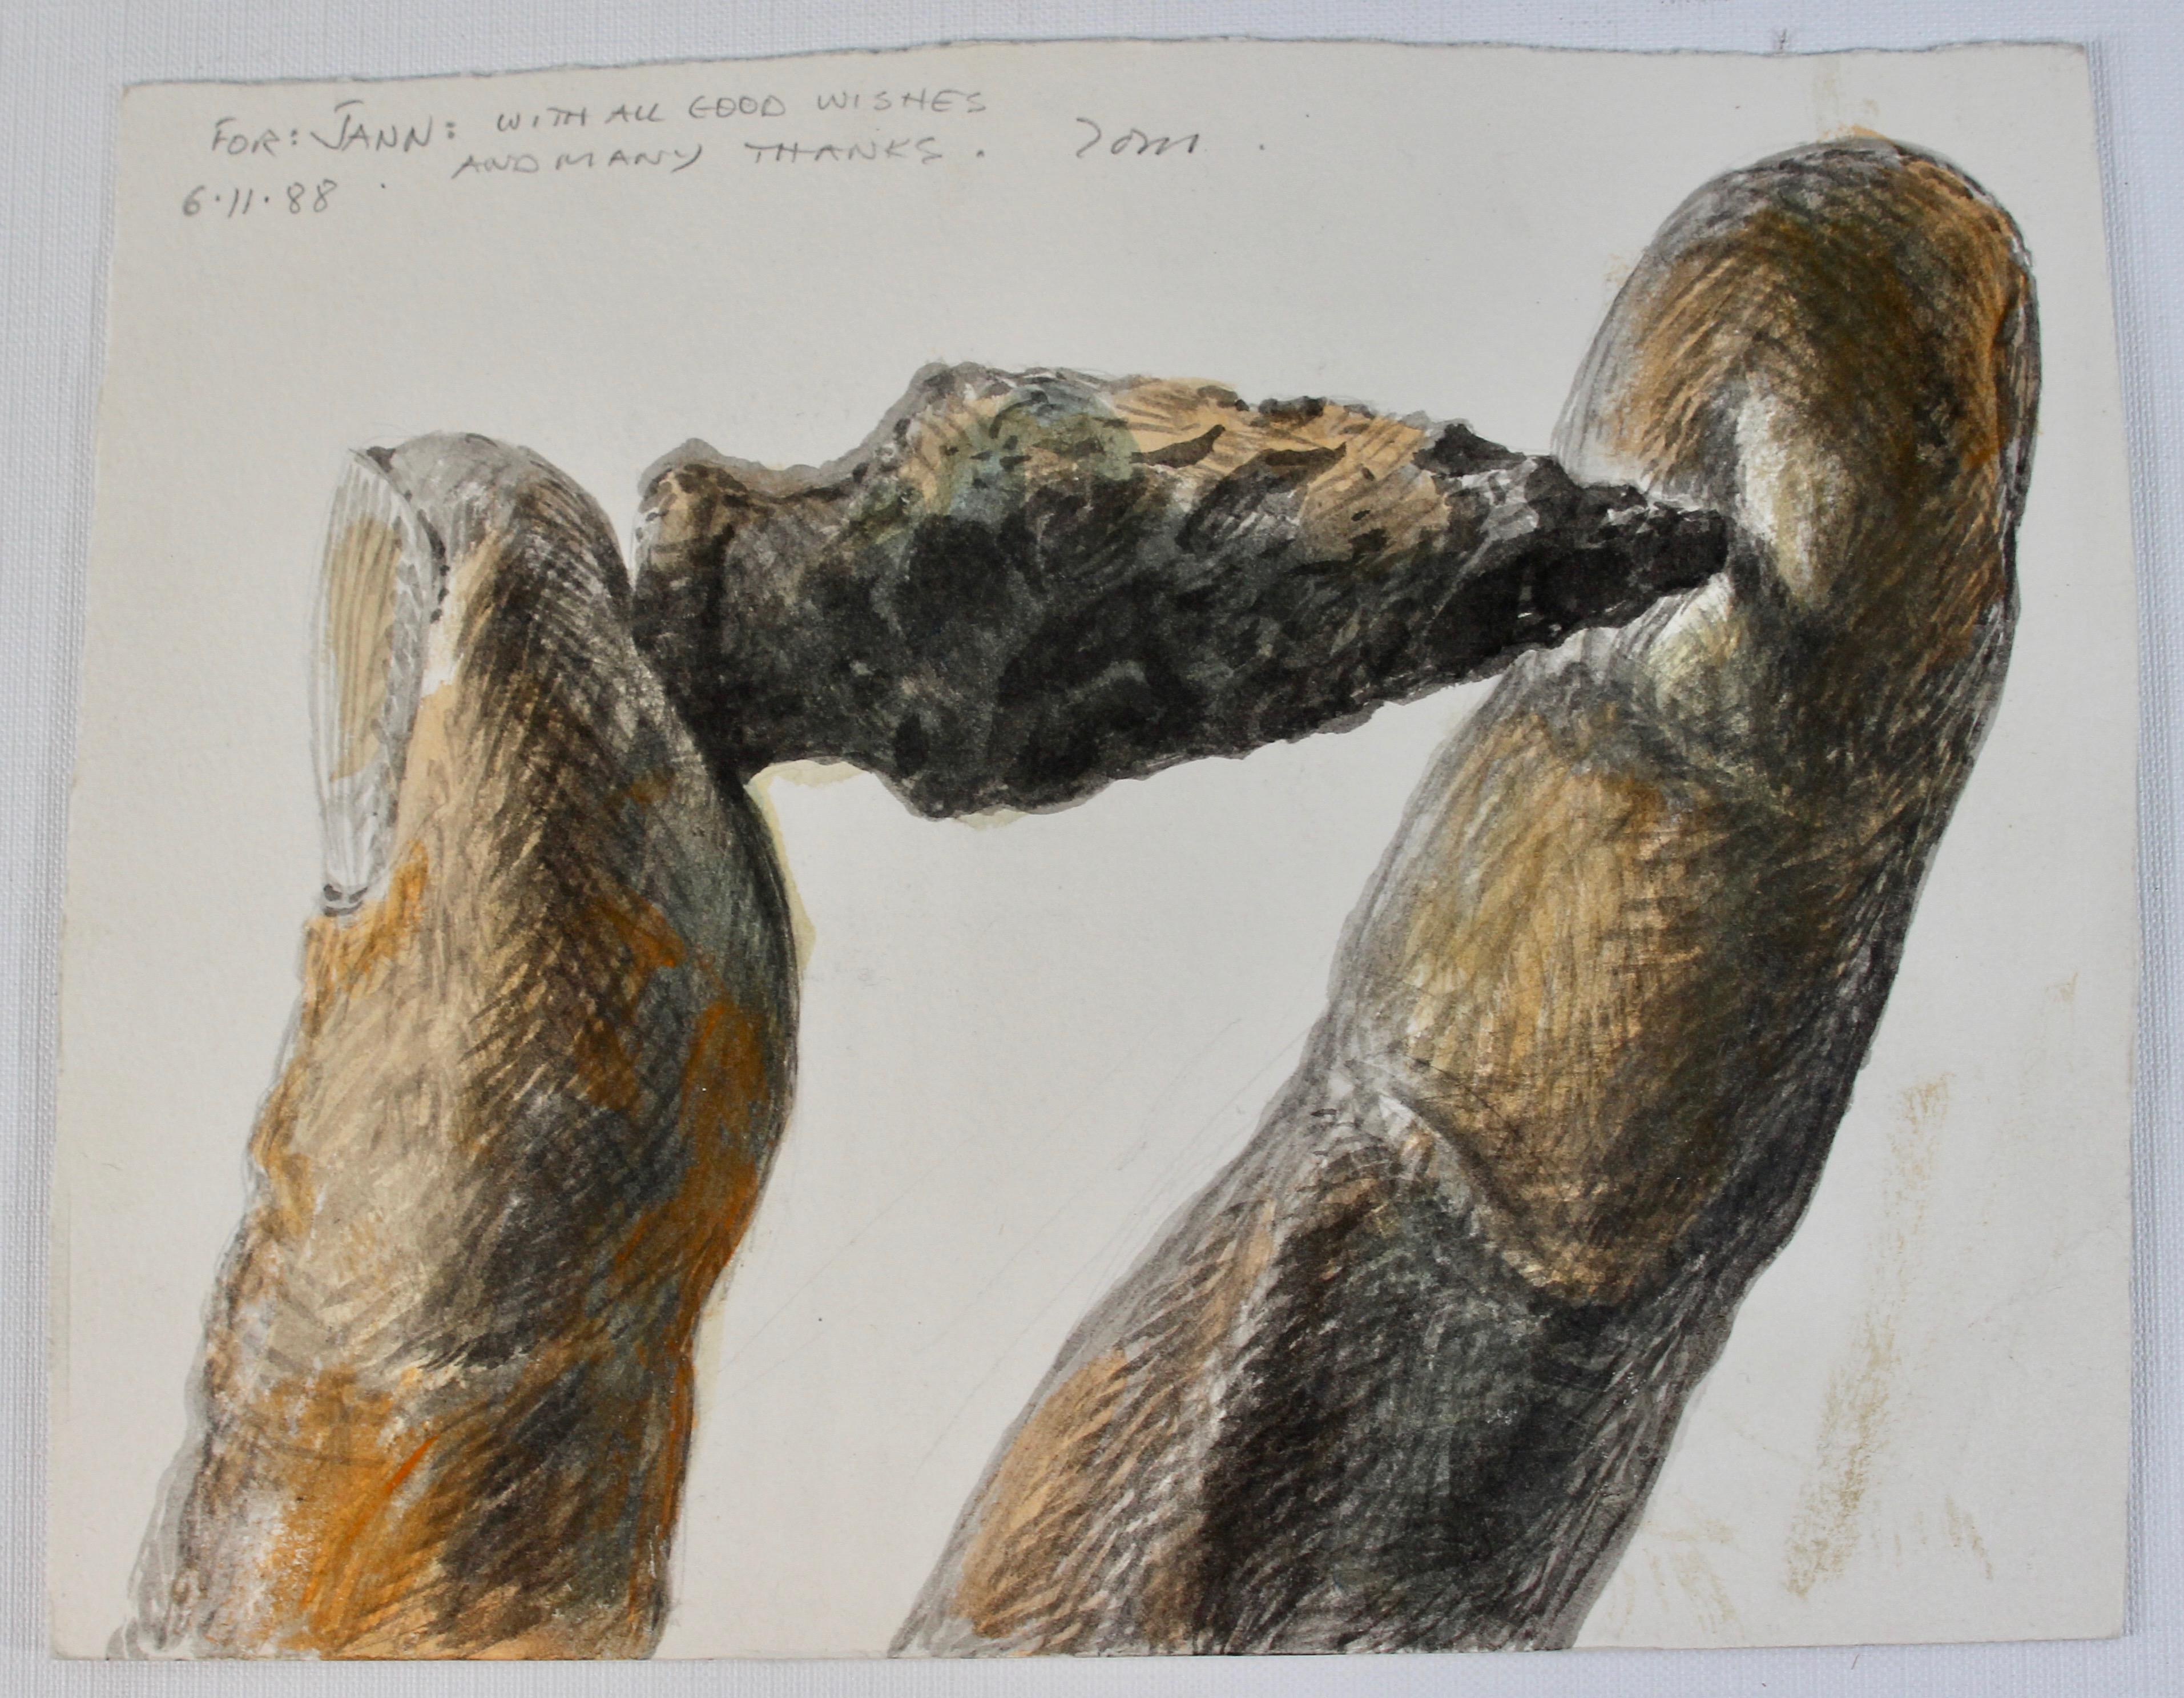 FOR: JANN: WITH ALL GOOD WISHES
AND MANY THANKS. Tom.
6.11.88.